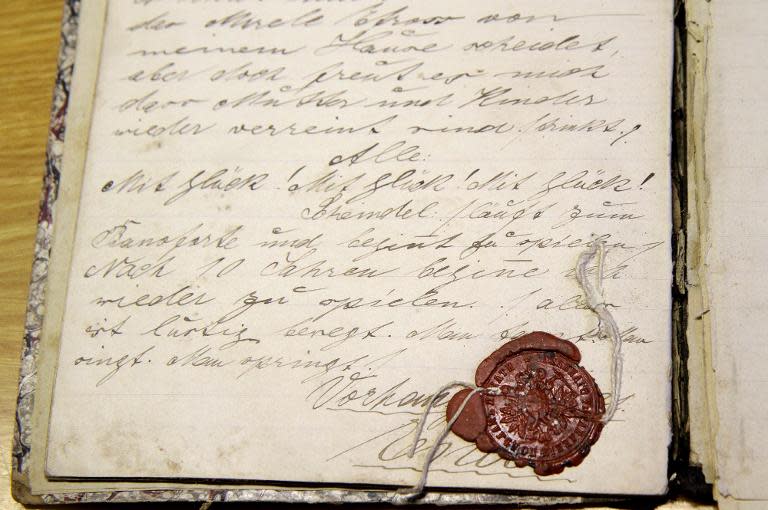 der Mirele Efross von
meinem Hause scheidet,
aber doch freut es mich
dass Mutter und Kinder
wieder vereint sind /trinkt./
Alle:
Mit Glück! Mit Glück! Mit Glück!
Schemdel. /läuft zum
Pianoforte und begint zu spielen/
Nach 10 Jahren begine ich
wieder zu spielen. /alles
ist lustig bewegt. Man
singt. Man springt./
Vorhang